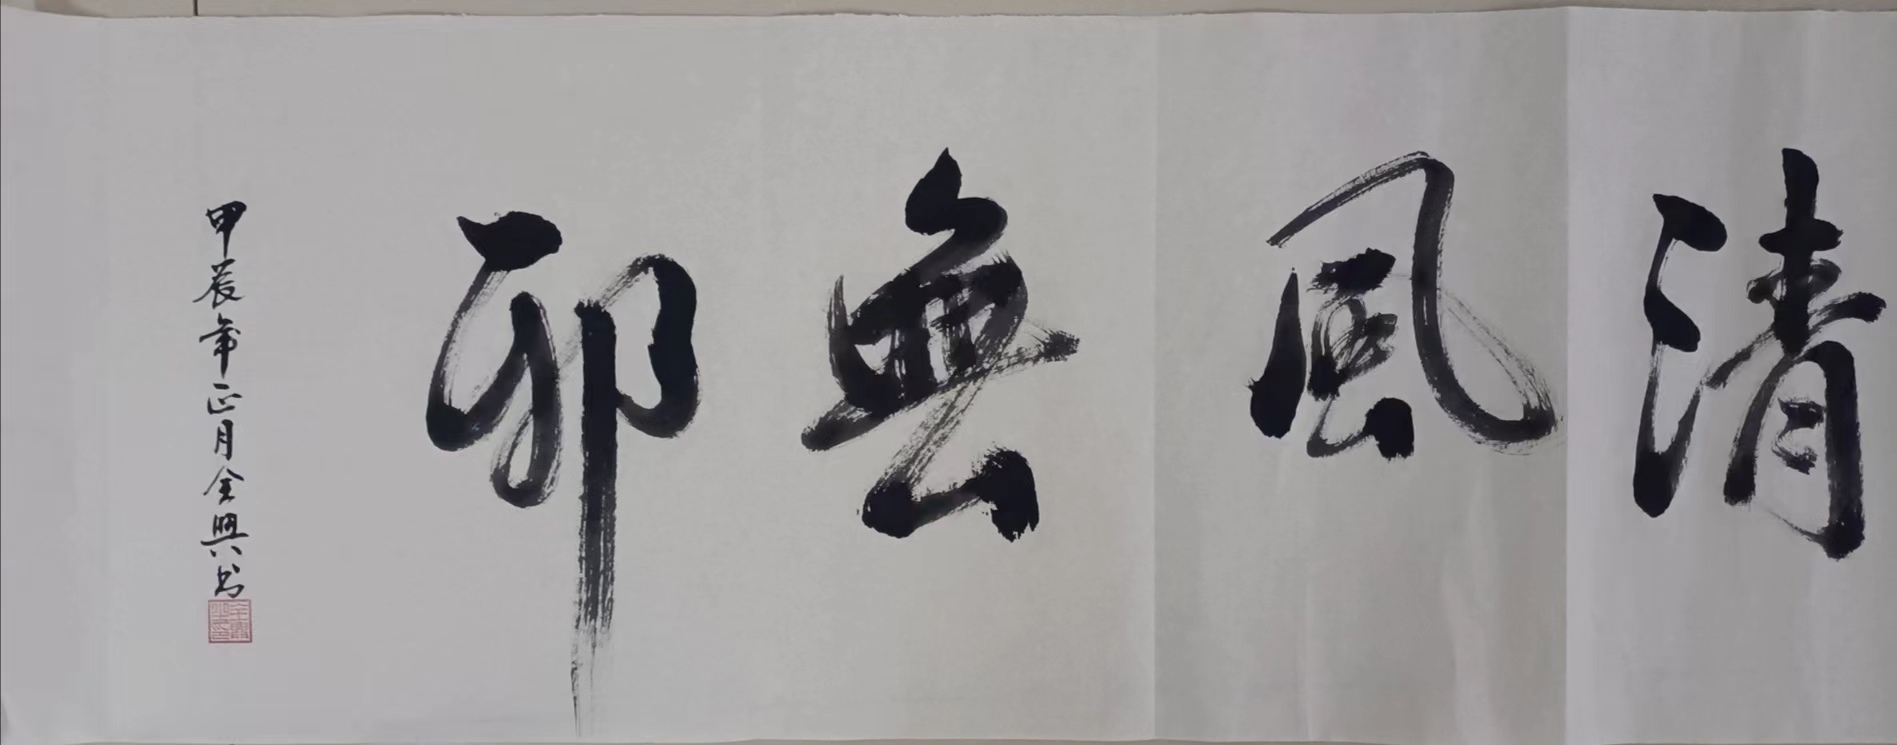 清風無邪
甲辰年正月全興书